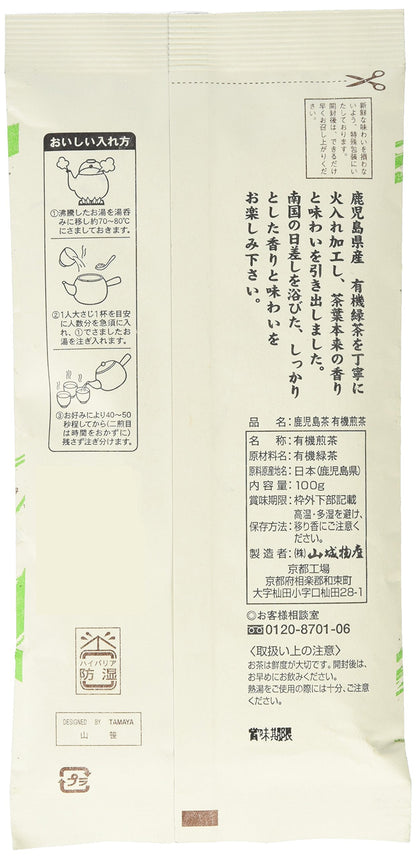 新鮮な味わいを損わな
いよう、特殊包装にい
たしております。
開封後は、できるだけ
早くお召し上がりくだ
さい。
鹿児島県産 有機緑茶を丁寧に
火入れ加工し、茶葉本来の香り
と味わいを引き出しました。
南国の日差しを浴びた、しっかり
とした香りと味わいを
お楽しみ下さい。
おいしい入れ方
①沸騰したお湯を湯呑
みに移し約70~80℃
にさましておきます。
②1人大さじ1杯を目安
に人数分を急須に入
れ、①でさましたお
湯を注ぎ入れます。
③お好みにより40~50
秒程してから(二煎目
は時間をおかずに)
残さず注ぎ分けます。
品名:鹿児島茶 有機煎茶
名称:有機煎茶
原材料名:有機緑茶
原料原産地名:日本(鹿児島県)
内容量:100g
賞味期限:枠外下部記載
保存方法:高温・多湿を避け、
移り香にご注意く
ださい。
製造者:㈱山城物産
京都工場
京都府相楽郡和束町
大字杣田小字口杣田28-1
◎お客様相談室
0120-8701-06
〈取扱い上の注意〉
お茶は鮮度が大切です。開封後は、
お早めにお飲みください。
熱湯をご使用の際には十分、ご注意
ください。
賞味期限
ハイバリア
防湿
DESIGNED BY TAMAYA
山笹
プラ